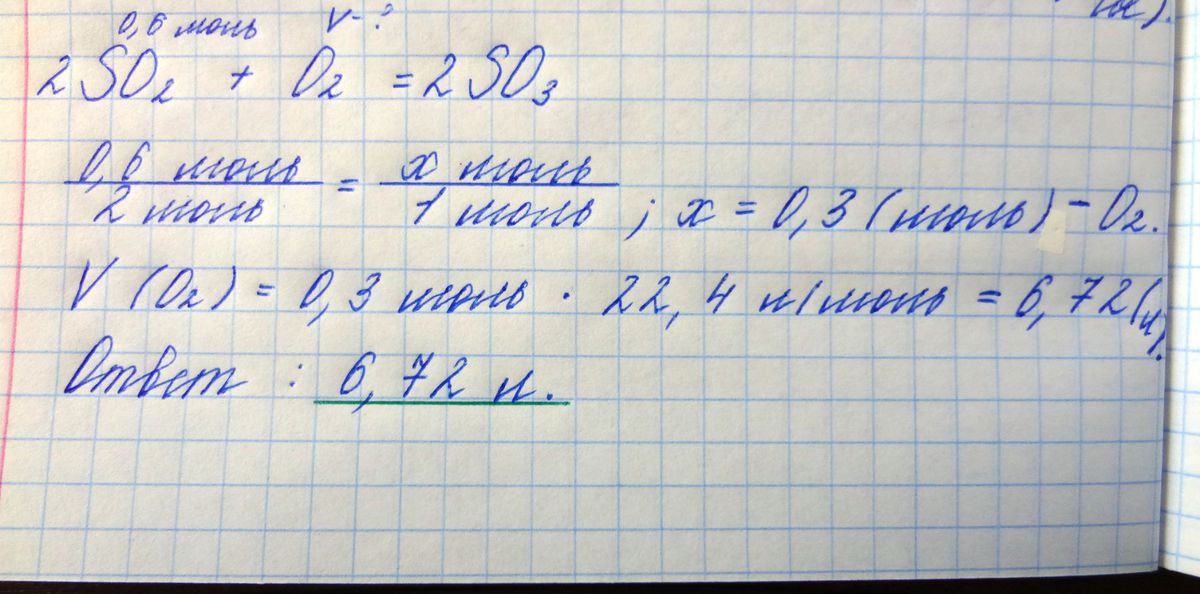 ое).
0,6 моль V-?
2SO₂ + O₂ = 2SO₃
0,6 моль / 2 моль = x моль / 1 моль ; x = 0,3 (моль) - O₂.
V (O₂) = 0,3 моль · 22,4 л/моль = 6,72 (л).
Ответ : 6,72 л.